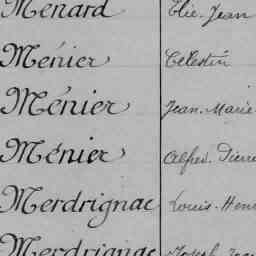 Menard Elie-Jean
Ménier Célestin
Ménier Jean-Marie
Ménier Alfred-Pierre
Merdrignac Louis-Henri
Merdrignac Joseph